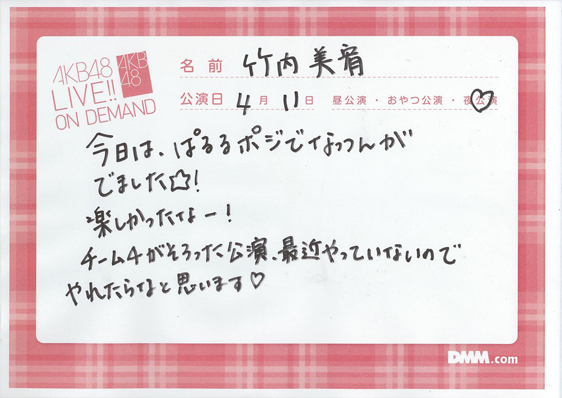 AKB48
LIVE!!
ON DEMAND
AKB
48
名前 竹内美宥
公演日 4月11日 昼公演・おやつ公演・夜公演
今日は、ぱるるポジでなっつんが
でました☆!
楽しかったなー!
チーム4がそろった公演、最近やっていないので
やれたらなと思います♡
DMM.com